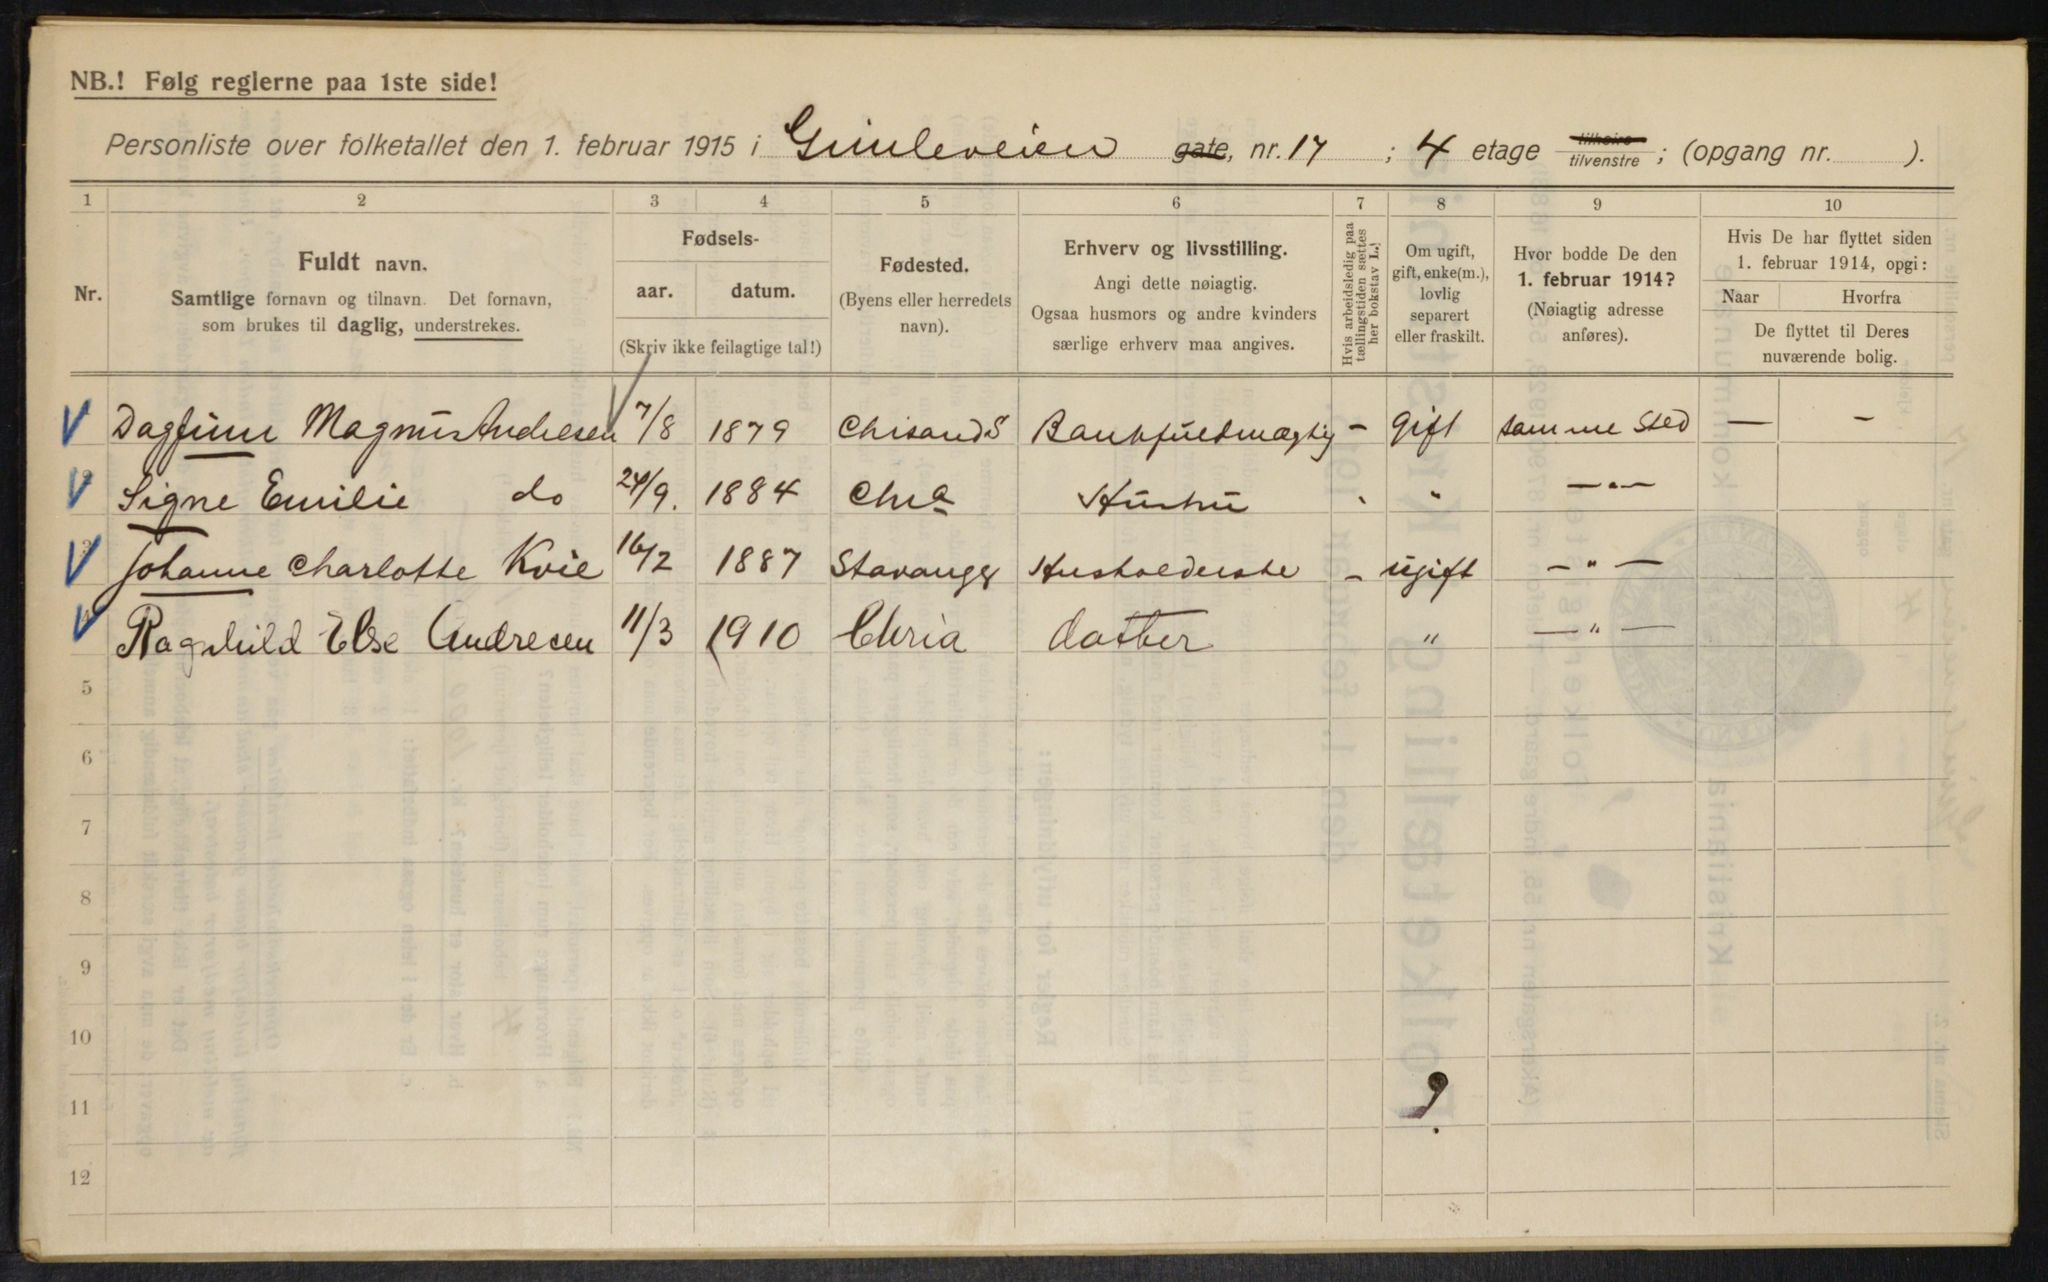 NB.! Følg reglerne paa 1ste side!
Personliste over folketallet den 1. februar 1915 i Gimleveien gate, nr. 17 ; 4 etage tilhøire tilvenstre ; (opgang nr. ).
1 2 3 4 5 6 7 8 9 10
Nr.
Fuldt navn.
Samtlige fornavn og tilnavn. Det fornavn,
som brukes til daglig, understrekes.
Fødsels-
aar. datum.
(Skriv ikke feilagtige tal!)
Fødested.
(Byens eller herredets
navn).
Erhverv og livsstilling.
Angi dette nøiagtig.
Ogsaa husmors og andre kvinders
særlige erhverv maa angives.
Hvis arbeidsledig paa
tællingstiden sættes
her bokstav L.!
Om ugift,
gift, enke(m.),
lovlig
separert
eller fraskilt.
Hvor bodde De den
1. februar 1914?
(Nøiagtig adresse
anføres).
Hvis De har flyttet siden
1. februar 1914, opgi:
Naar Hvorfra
De flyttet til Deres
nuværende bolig.
Dagfinn Magnus Andresen 7/8 1879 Chrsand S Bankfuldmægtig - gift samme Sted — -
2 Signe Emilie do 24/9. 1884 Chra Hustru " —"—
3 Johanne Charlotte Kvie 16/2 1887 Stavanger Husholderske - ugift —"—
4 Ragnhild Else Andresen 11/3 1910 Chria datter " —"—
5
6
7
8
9
10
11
12